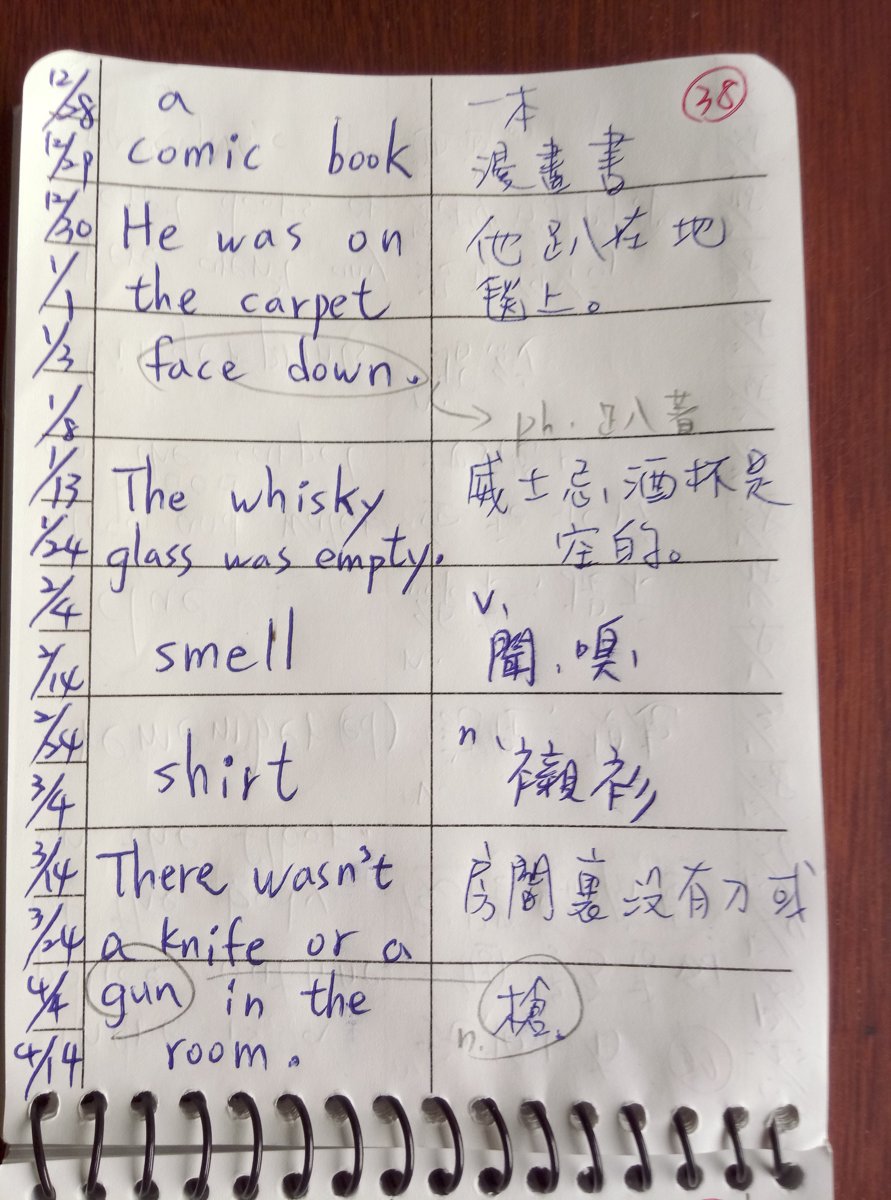 38
12/28 a 一本
12/29 comic book 漫畫書
12/30 He was on 他趴在地
1/1 the carpet 毯上。
1/3 face down.
1/8 ph. 趴著
1/13 The whisky 威士忌酒杯是
1/24 glass was empty. 空的。
2/4 v.
2/14 smell 聞、嗅
2/24 n.
3/4 shirt 襯衫
3/14 There wasn't 房間裏沒有刀或
3/24 a knife or a
4/4 gun in the n. 槍。
4/14 room.